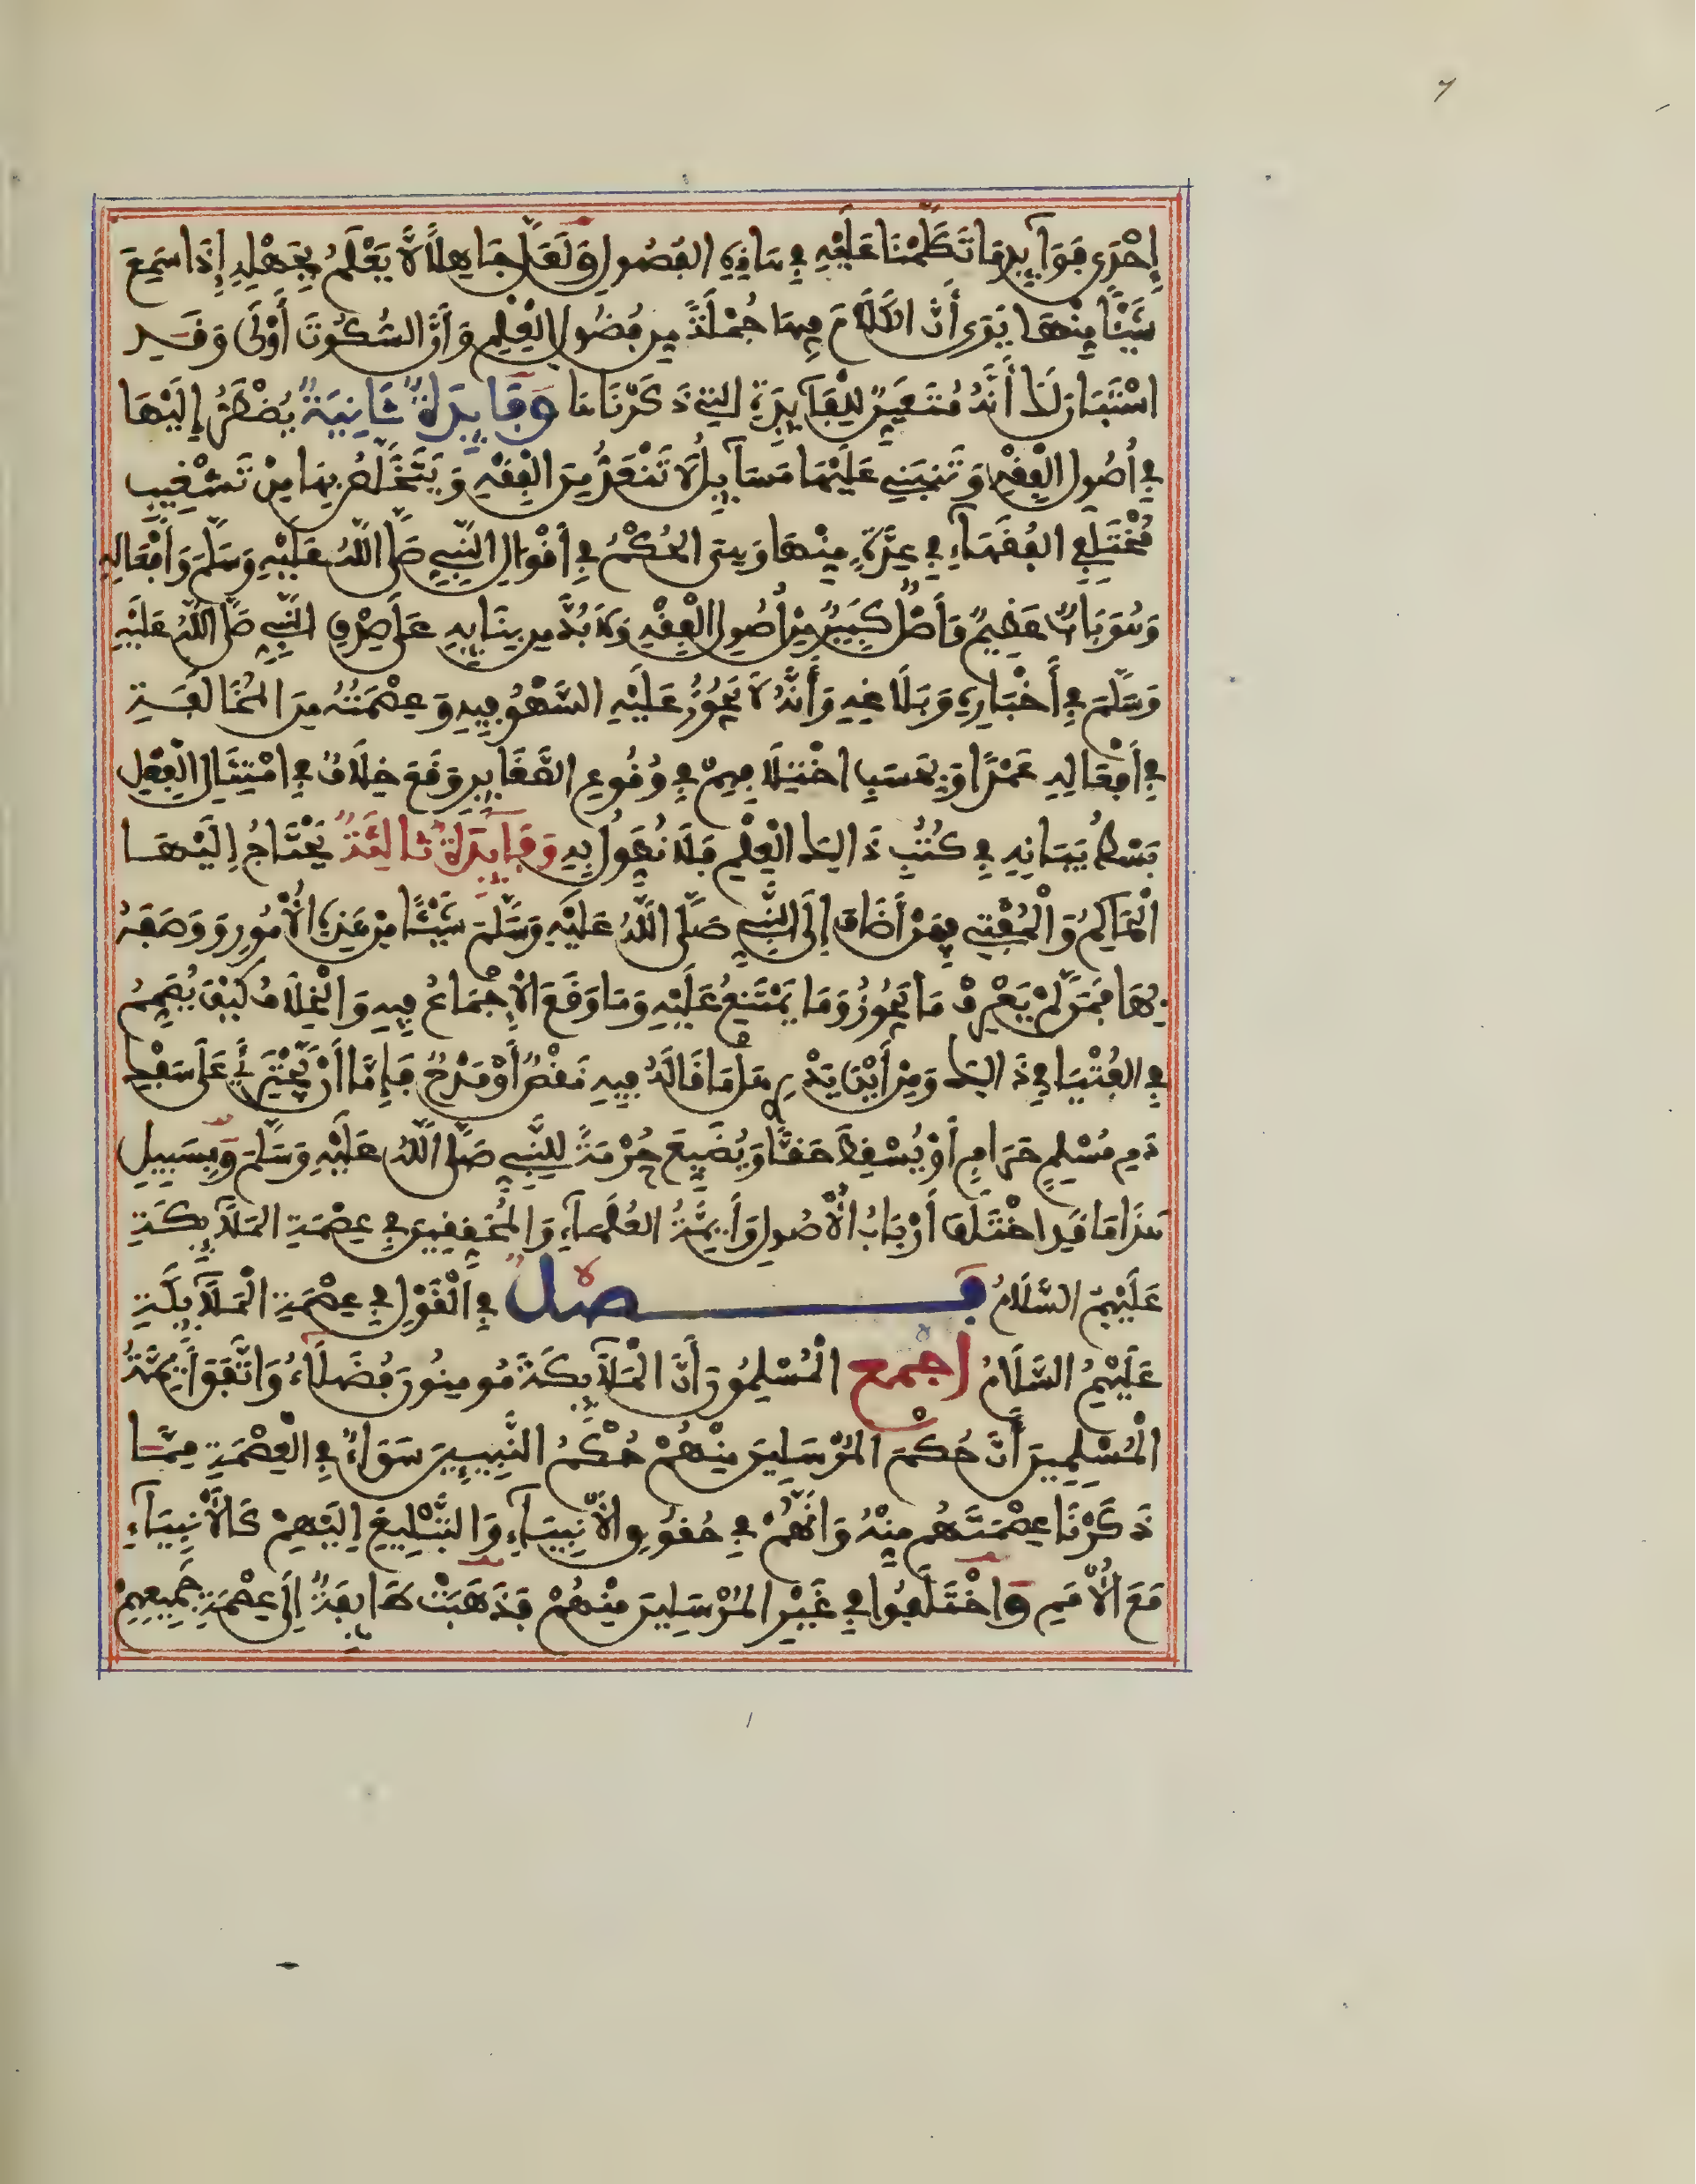 إِحْدَى فَوَآئِدِ مَا تَكَلَّمْنَا عَلَيْهِ فِي هَاذِهِ الفُصُولِ وَلَعَلَّ جَاهِلًا لَّا يَعْلَمُ بِجَهْلِهِ إِذَا سَمِعَ
شَيْئًا مِنْهَا يَرَى أَنَّ الكَلَامَ فِيهَا جُمْلَةً مِن فُضُولِ الْعِلْمِ وَأَنَّ السُّكُوتَ أَوْلَى وَقَدِ
اسْتَبَانَ لَكَ أَنَّهُ مُتَعَيِّنٌ لِلْفَآئِدَةِ التِي ذَكَرْنَاهَا وَفَائِدَةٌ ثَانِيَةٌ يُضْطَرُّ إِلَيْهَا
فِي أُصُولِ الْفِقْهِ وَتَنبَنِي عَلَيْهَا مَسَآئِلُ لَا تَنْعَدُّ مِنَ الْفِقْهِ وَيَتَخَلَّصُ بِهَا مِنْ تَشْغِيبِ
مُخْتَلِفِي الفُقَهَآءِ فِي عِدَّةٍ مِنْهَا وَهِيَ الحُكْمُ فِي أَقْوَالِ النَّبِيِّ صَلَّى اللَّهُ عَلَيْهِ وَسَلَّمَ وَأَفْعَالِهِ
وَهُوَ بَابٌ عَظِيمٌ وَأَصْلٌ كَبِيرٌ مِنْ أُصُولِ الْفِقْهِ وَلَا بُدَّ مِن بِنَائِهِ عَلَى صِدْقِ النَّبِيِّ صَلَّى اللَّهُ عَلَيْهِ
وَسَلَّمَ فِي أَخْبَارِهِ وَبَلَاغِهِ وَأَنَّهُ لَا يَجُوزُ عَلَيْهِ السَّهْوُ فِيهِ وَعِصْمَتُهُ مِنَ المُخَالَفَةِ
فِي أَفْعَالِهِ عَمْدًا وَبِحَسَبِ اخْتِلَافِهِمْ فِي وُقُوعِ الصَّغَائِرِ وَقَعَ خِلَافٌ فِي امْتِثَالِ الْفِعْلِ
بَسْطُ بَيَانِهِ فِي كُتُبِ ذَالِكَ الْعِلْمِ فَلَا نُطَوِّلُ بِهِ وَفَائِدَةٌ ثَالِثَةٌ يَحْتَاجُ إِلَيْهَا
الْحَاكِمُ وَالْمُفْتِي فِيمَنْ أَضَافَ إِلَى النَّبِيِّ صَلَّى اللَّهُ عَلَيْهِ وَسَلَّمَ شَيْئًا مِنْ هَذِهِ الْأُمُورِ وَوَصَفَهُ
بِهَا فَمَن لَّمْ يَعْرِفْ مَا يَجُوزُ وَمَا يَمْتَنِعُ عَلَيْهِ وَمَا وَقَعَ الْإِجْمَاعُ فِيهِ وَالْخِلَافُ كَيْفَ يُصَمِّمُ
فِي الفُتْيَا فِي ذَالِكَ وَمِنْ أَيْنَ يَدْرِي هَلْ مَا قَالَهُ فِيهِ نَقْصٌ أَوْ مَدْحٌ فَإِمَّا أَنْ يَجْتَرِئَ عَلَى سَفْكِ
دَمِ مُسْلِمٍ حَرَامٍ أَوْ يُسْقِطَ حَقًّا وَيُضَيِّعَ حُرْمَةً لِلنَّبِيِّ صَلَّى اللَّهُ عَلَيْهِ وَسَلَّمَ وَبِسَبِيلِ
هَذَا مَا قَدِ اخْتَلَفَ أَرْبَابُ الْأُصُولِ وَأَئِمَّةُ العُلَمَآءِ وَالمُحَقِّقِينَ فِي عِصْمَةِ المَلَآئِكَةِ
عَلَيْهِمُ السَّلَامُ فَصْلٌ فِي الْقَوْلِ فِي عِصْمَةِ الْمَلَآئِكَةِ
عَلَيْهِمُ السَّلَامُ أَجْمَعَ الْمُسْلِمُونَ أَنَّ الْمَلَآئِكَةَ مُومِنُونَ فُضَلَآءُ وَاتَّفَقَ أَئِمَّةُ
الْمُسْلِمِينَ أَنَّ حُكْمَ المُرْسَلِينَ مِنْهُمْ حُكْمُ النَّبِيِينَ سَوَآءٌ فِي الْعِصْمَةِ مِمَّا
ذَكَرْنَا عِصْمَتَهُم مِنْهُ وَأَنَّهُمْ فِي حُقُوقِ الْأَنْبِيَآءِ وَالتَّبْلِيغِ إِلَيْهِمْ كَالْأَنْبِيَآءِ
مَعَ الْأُمَمِ وَاخْتَلَفُوا فِي غَيْرِ المُرْسَلِينَ مِنْهُمْ فَذَهَبَتْ طَائِفَةٌ إِلَى عِصْمَةِ جَمِيعِهِمْ